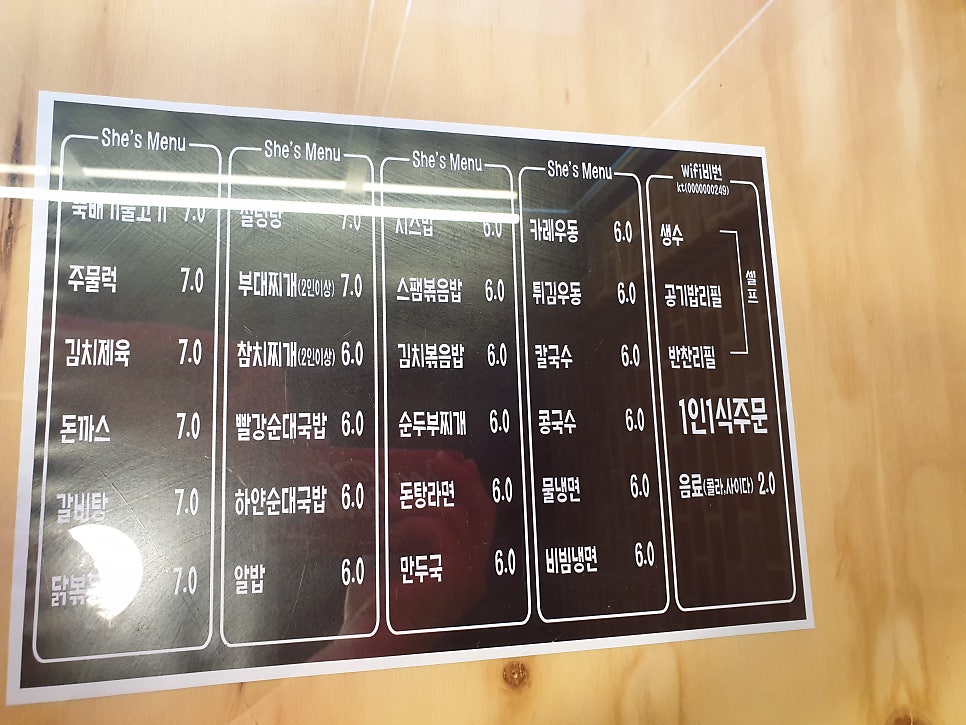 She's Menu
뚝배기불고기 7.0
주물럭 7.0
김치제육 7.0
돈까스 7.0
갈비탕 7.0
7.0
She's Menu
설렁탕 7.0
부대찌개(2인이상) 7.0
참치찌개(2인이상) 6.0
빨강순대국밥 6.0
하얀순대국밥 6.0
알밥 6.0
She's Menu
치즈밥 6.0
스팸볶음밥 6.0
김치볶음밥 6.0
순두부찌개 6.0
돈탕라면 6.0
만두국 6.0
She's Menu
카레우동 6.0
튀김우동 6.0
칼국수 6.0
콩국수 6.0
물냉면 6.0
비빔냉면 6.0
Wifi비번
kt(0000000249)
생수
공기밥리필
반찬리필
셀프
1인1식주문
음료(콜라,사이다) 2.0